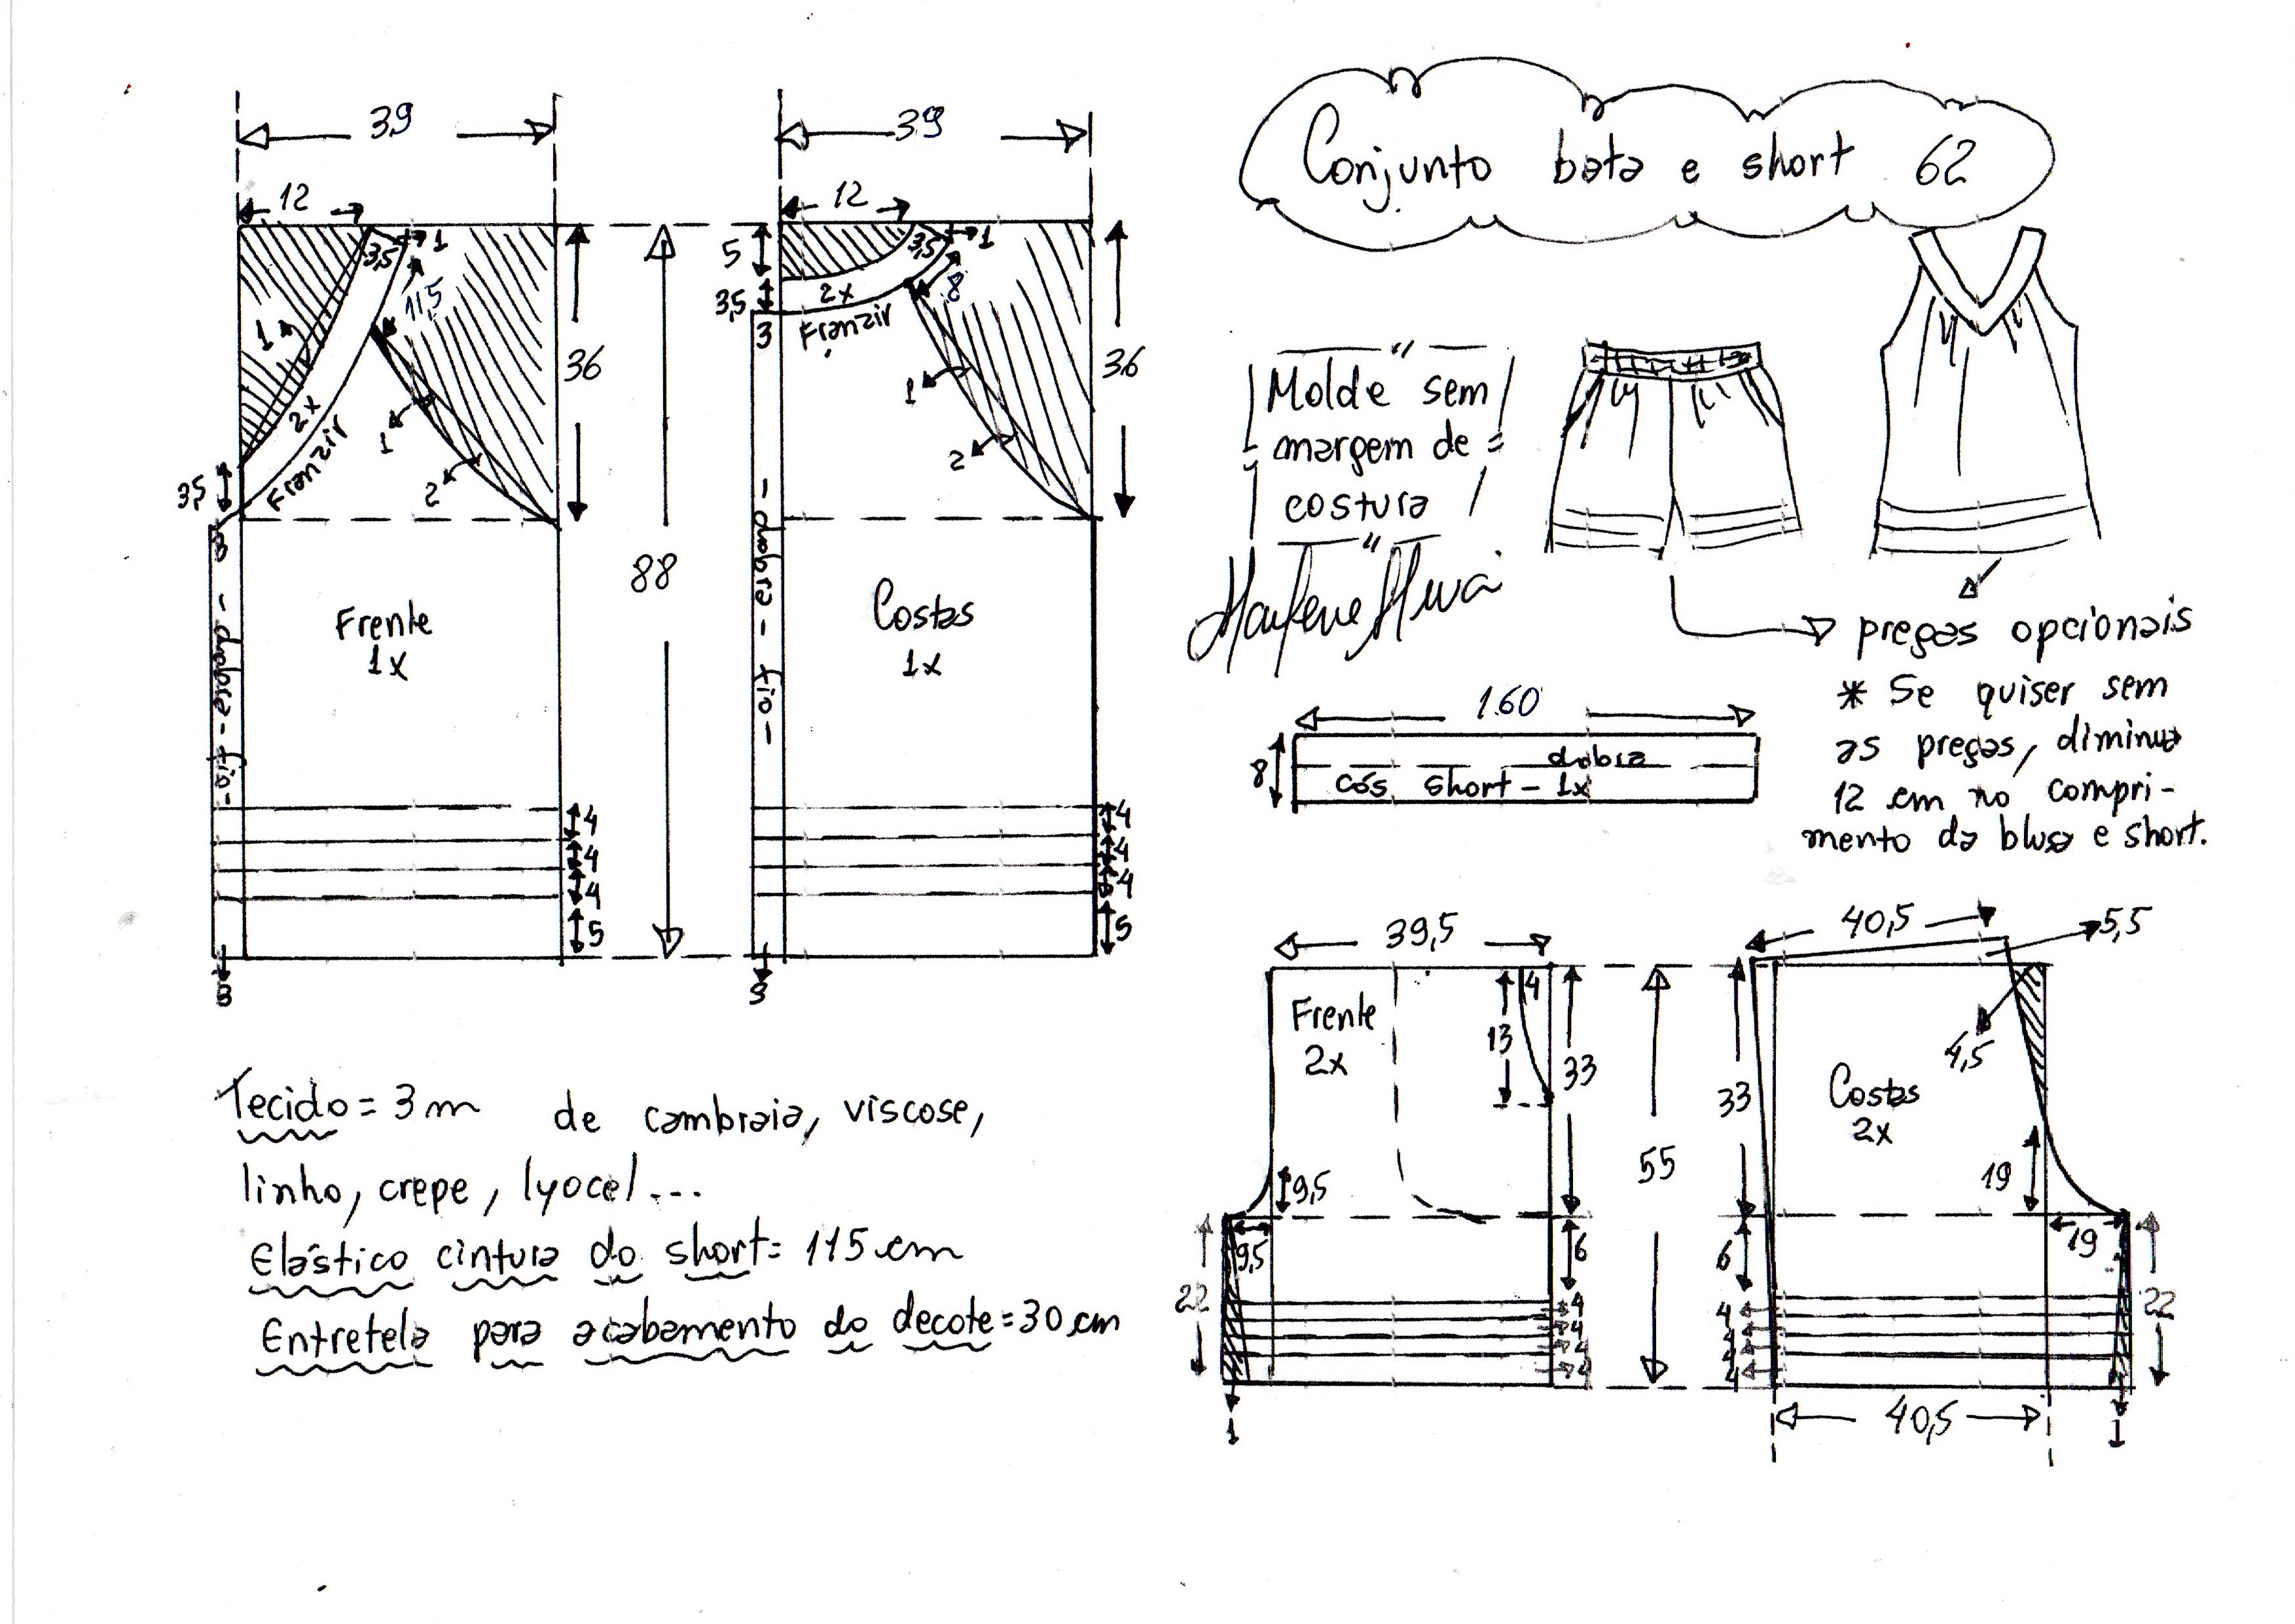 Conjunto bata e short 62
39
12
3,5
1
11,5
1
2x
Franzir
3,5
1
2
36
3
- dobra - fio -
Frente
1x
4
4
4
5
3
88
39
12
5
3,5
1
8
3,5
2x
Franzir
3
1
2
36
- dobra - fio -
Costas
1x
4
4
4
5
3
Molde sem
margem de
costura
pregas opcionais
* Se quiser sem
as pregas, diminua
12 cm no compri-
mento da blusa e short.
1.60
8
dobra
cós short - 1x
Tecido = 3 m de cambraia, viscose,
linho, crepe, lyocel...
Elástico cintura do short = 115 cm
Entretela para acabamento do decote = 30 cm
39,5
Frente
2x
4
13
33
9,5
9,5
6
22
4
4
4
4
1
55
40,5
5,5
4,5
33
Costas
2x
19
19
6
4
4
4
4
22
40,5
1